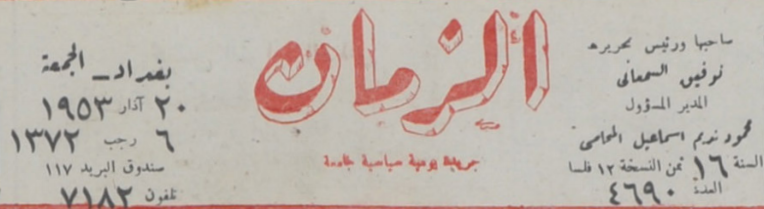 صاحبها ورئيس تحريره
توفيق السمعاني
المدير المسؤول
محمود نديم اسماعيل المحامي
السنة ١٦ ثمن النسخة ١٢ فلسا
العدد ٤٦٩٠
الزمان
جريدة يومية سياسية جامعة
بغداد - الجمعة
٢٠ آذار ١٩٥٣
٦ رجب ١٣٧٢
صندوق البريد ١١٧
تلفون ٧١٨٢